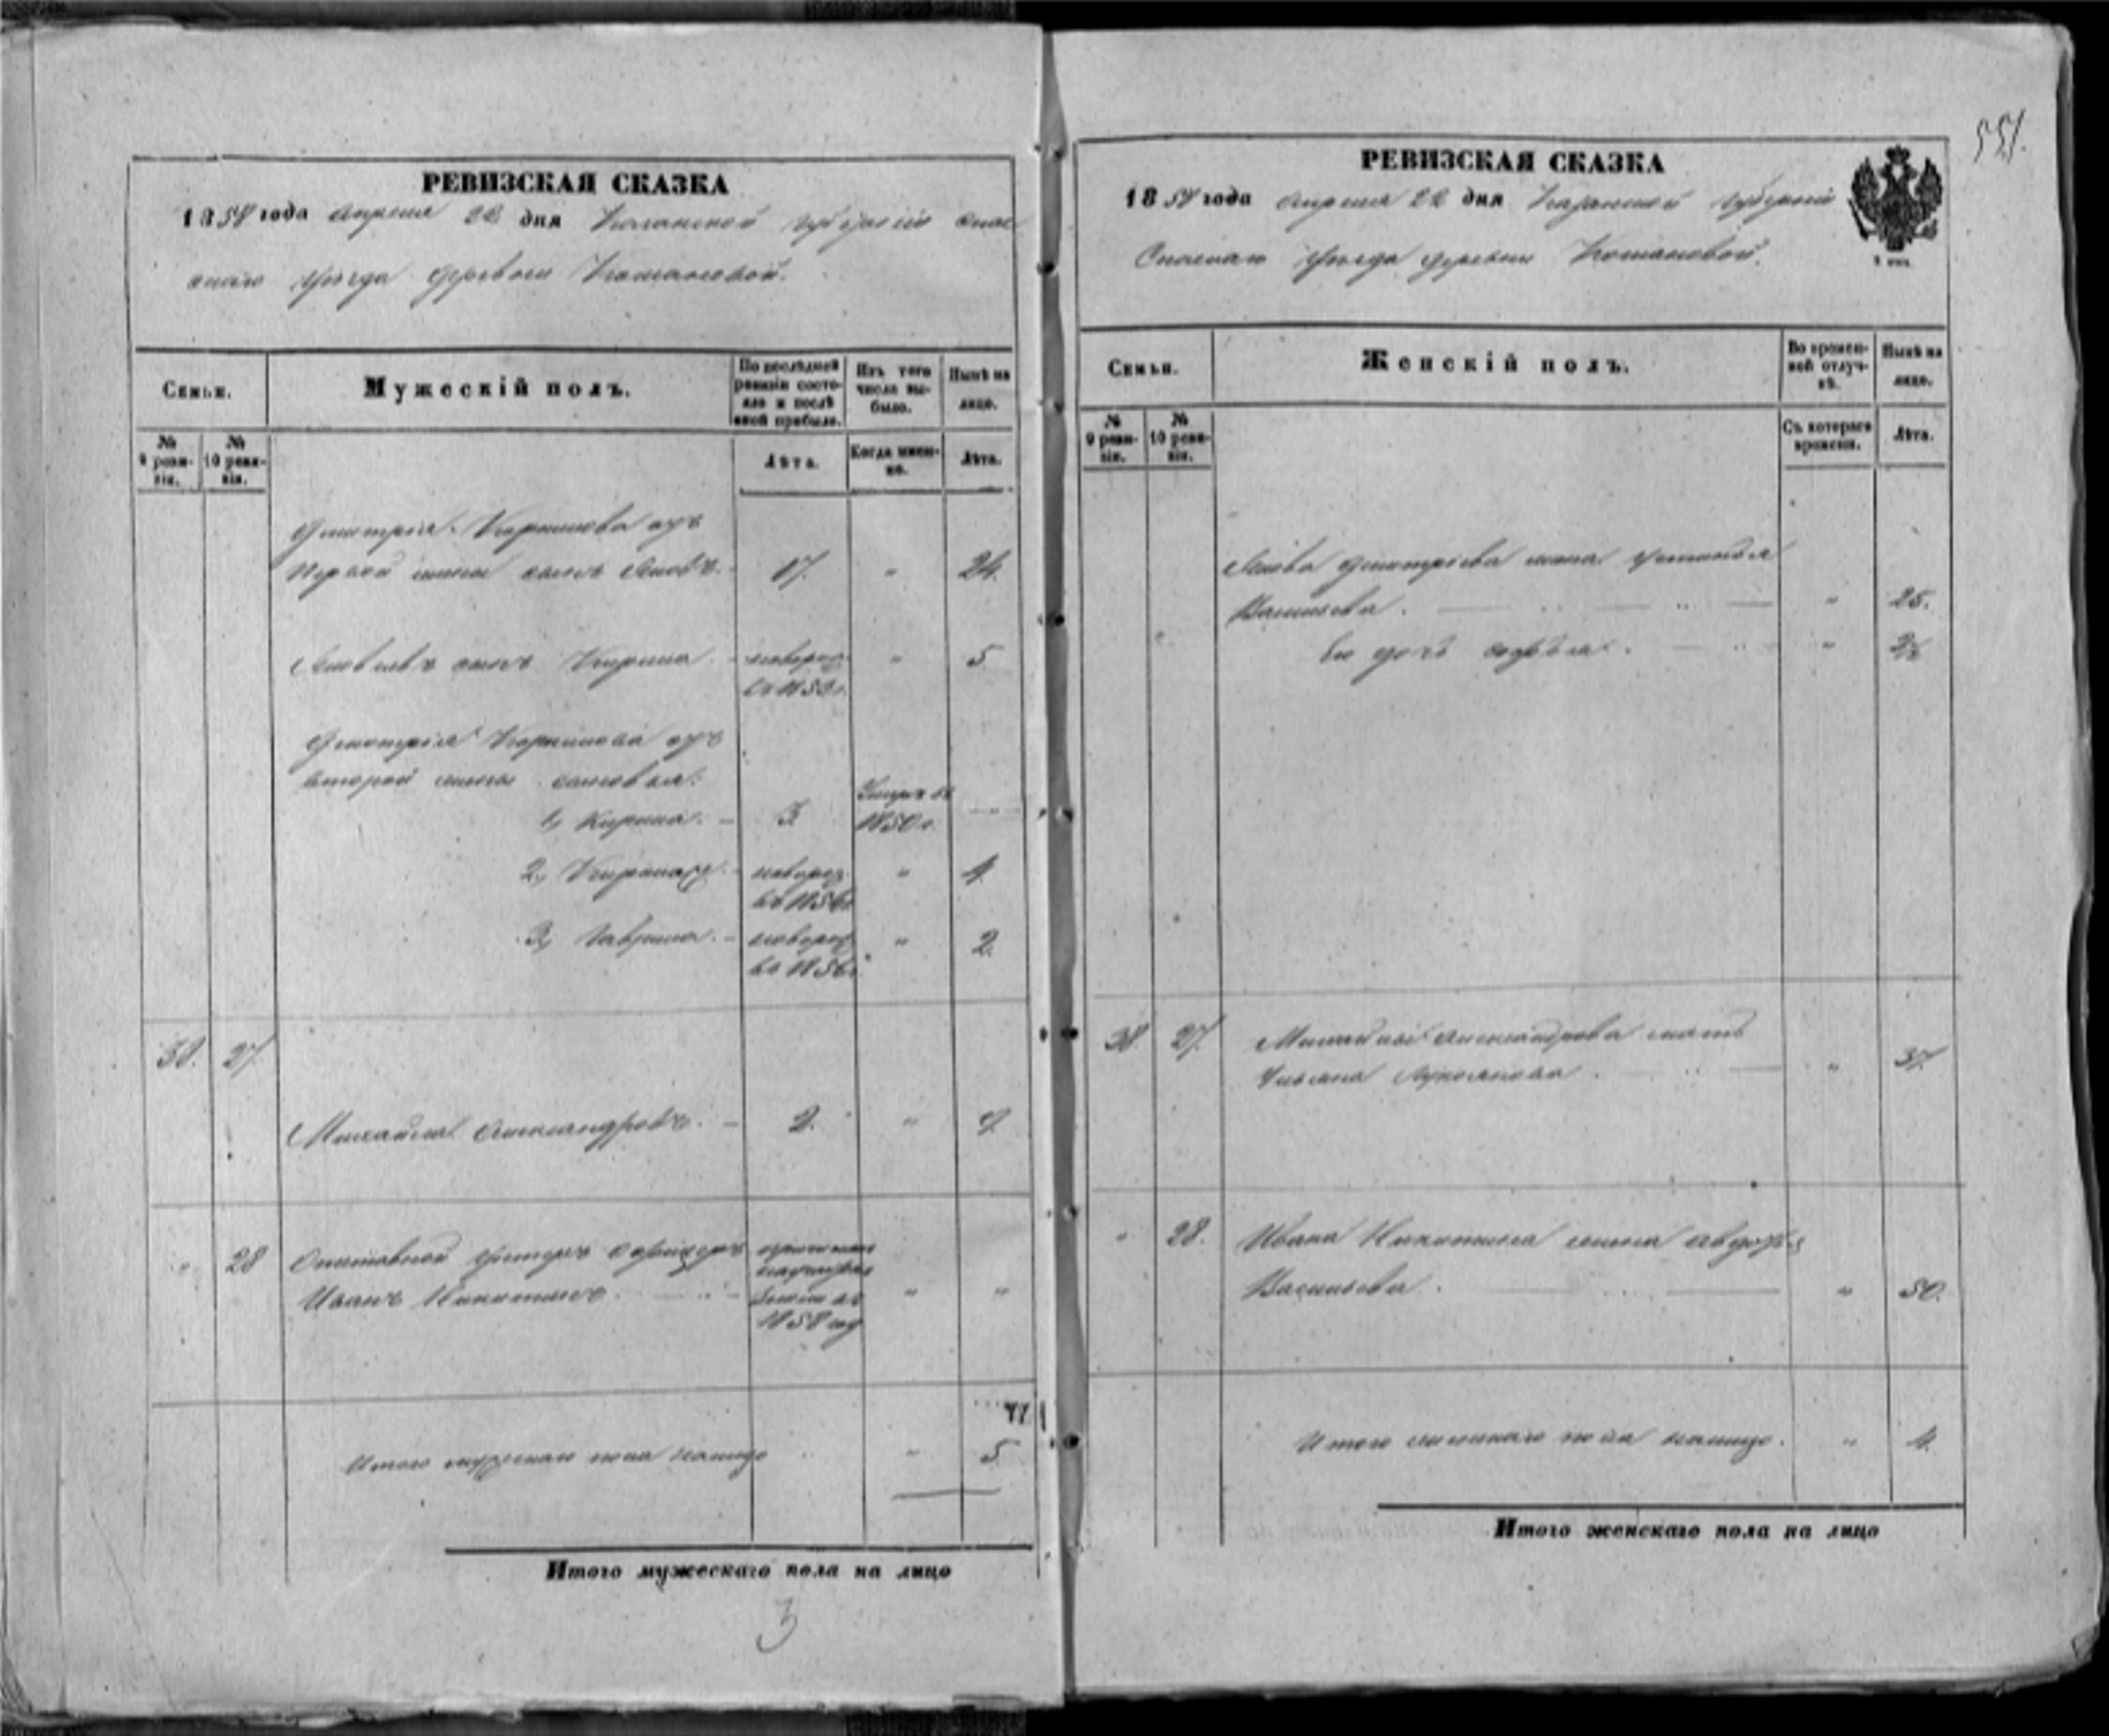 РЕВИЗСКАЯ СКАЗКА
1858 года Апреля 22 дня Казанской Губерніи Спас
скаго Уѣзда деревни Кошановой.
Семьи.
Мужескій полъ.
По послѣдней ревизіи состояло и послѣ оной прибыло.
Изъ того числа выбыло.
Нынѣ на лицо.
№ 9 ревизіи.
№ 10 ревизіи.
Лѣта.
Когда именно.
Лѣта.
Дмитрія Кирилова отъ
первой жены сынъ Яковъ. 17. " 24.
Яковлевъ сынъ Кирила. новорож. " 5
въ 1853 г.
Дмитрія Кирилова отъ
второй жены сыновья:
1, Кирила. 3 1850 г.
2, новорож. " 4.
3, Гаврила. новорож. " 2.
въ 1856 г.
38. 27.
Михайла Александровъ. 2. " 9.
" 28 Отставной Унтеръ Офицеръ
Иванъ Никитинъ. " "
1858 году
Итого мужескаго пола налицо " 5
Итого мужескаго пола на лицо
3
551.
РЕВИЗСКАЯ СКАЗКА
1858 года Апреля 22 дня Казанской Губерніи
Спаскаго Уѣзда деревни Кошановой.
Семьи.
Женскій полъ.
Во временной отлучкѣ.
Нынѣ на лицо.
№ 9 ревизіи.
№ 10 ревизіи.
Съ котораго времени.
Лѣта.
Якова Дмитріева жена Устинья
Васильева. " 25.
Ея дочь "
38. 27. Михайлы Александрова мать
Ульяна Лукоянова. " 37.
" 28. Ивана Никитина жена Авдотья
Васильева. " 50.
Итого женскаго пола налицо. " 4.
Итого женскаго пола на лицо